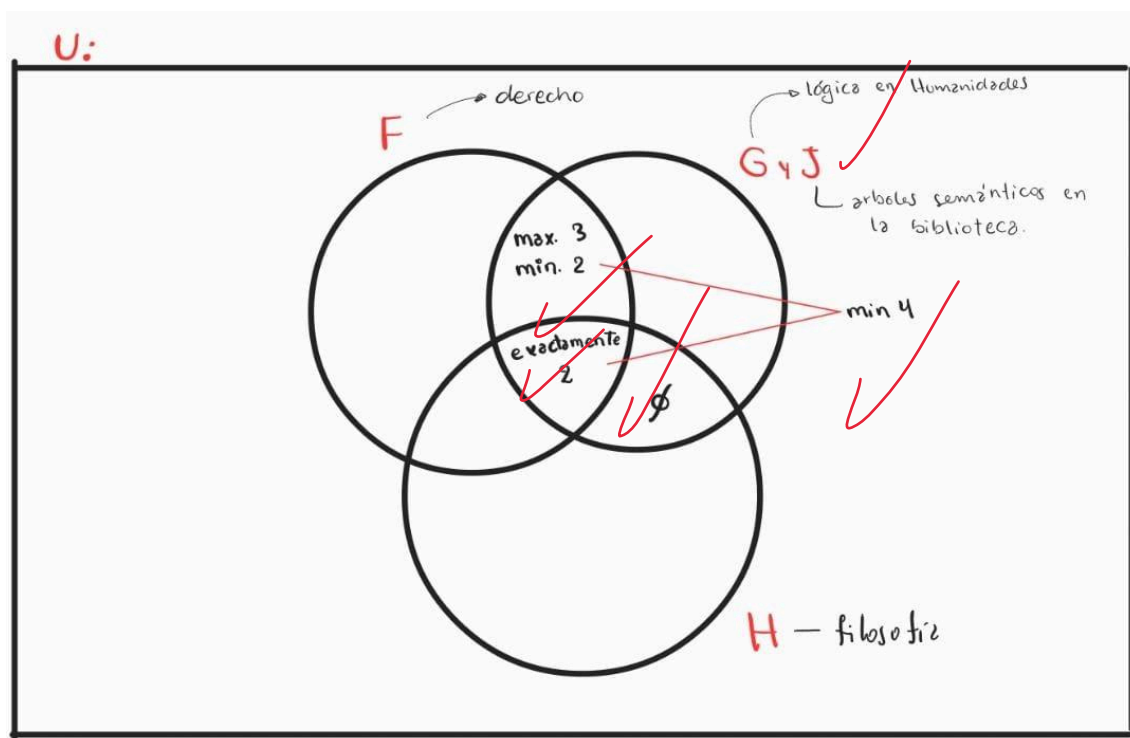 U:
F
derecho
lógica en Humanidades
G y J
arboles semánticos en
la biblioteca.
max. 3
min. 2
min 4
exactamente
2
ø
H - filosofía